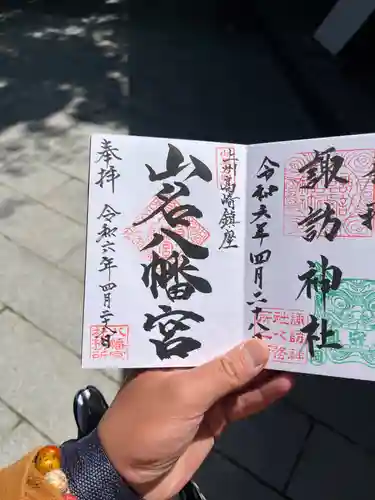 諏訪神社
令和六年四月二十八
上州高崎鎮座
山名八幡宮
奉拝 令和六年四月二